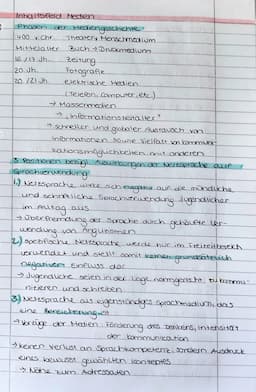 Inhaltsfeld Medien
Phasen der Mediengeschichte
400 v. Chr. Theater, Menschmedium
Mittelalter Buch → Druckmedium
16./17. Jh. Zeitung
20. Jh. Fotografie
20./21. Jh. elektrische Medien
(Telefon, Computer, etc.)
→ Massenmedien
→ "Informationszeitalter"
→ schneller und globaler Austausch von
Informationen sowie Vielfalt von Kommuni-
kationsmöglichkeiten mit anderen
3 Positionen bezügl. Auswirkungen der Netzsprache auf
Sprachverwendung
1.) Netzsprache wirke sich negativ auf die mündliche
und schriftliche Sprachverwendung Jugendlicher
im Alltag aus
→ Überfremdung der Sprache durch gehäufte Ver-
wendung von Anglizismen
2.) spezifische Netzsprache werde nur im Freizeitbereich
verwendet und stelle somit keinen grundsätzlich
negativen Einfluss dar
→ Jugendliche seien in der Lage, normgerecht zu kommu-
nizieren und schreiben
3.) Netzsprache als eigenständiges Sprachmedium, das
eine Bereicherung ist
→ Vorzüge der Medien, Förderung des Denkens, Intensität
der Kommunikation
→ keinen Verlust an Sprachkompetenz, sondern Ausdruck
eines bewusst gewählten Konzeptes
→ Nähe zum Adressaten